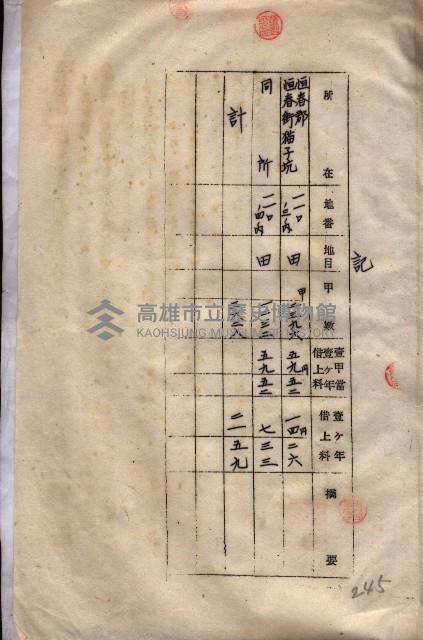 記
所在
地番
地目
甲數
壹甲當壹ヶ年借上料
壹ヶ年借上料
摘要
恒春郡恒春街猫子坑
一一〇ノ三内
田
甲
五九円五二
一四円二六
同所
一一〇ノ四内
田
五九五二
七三三
計
二一五九
高雄市立歷史博物館
KAOHSIUNG MUSEUM OF HISTORY
245